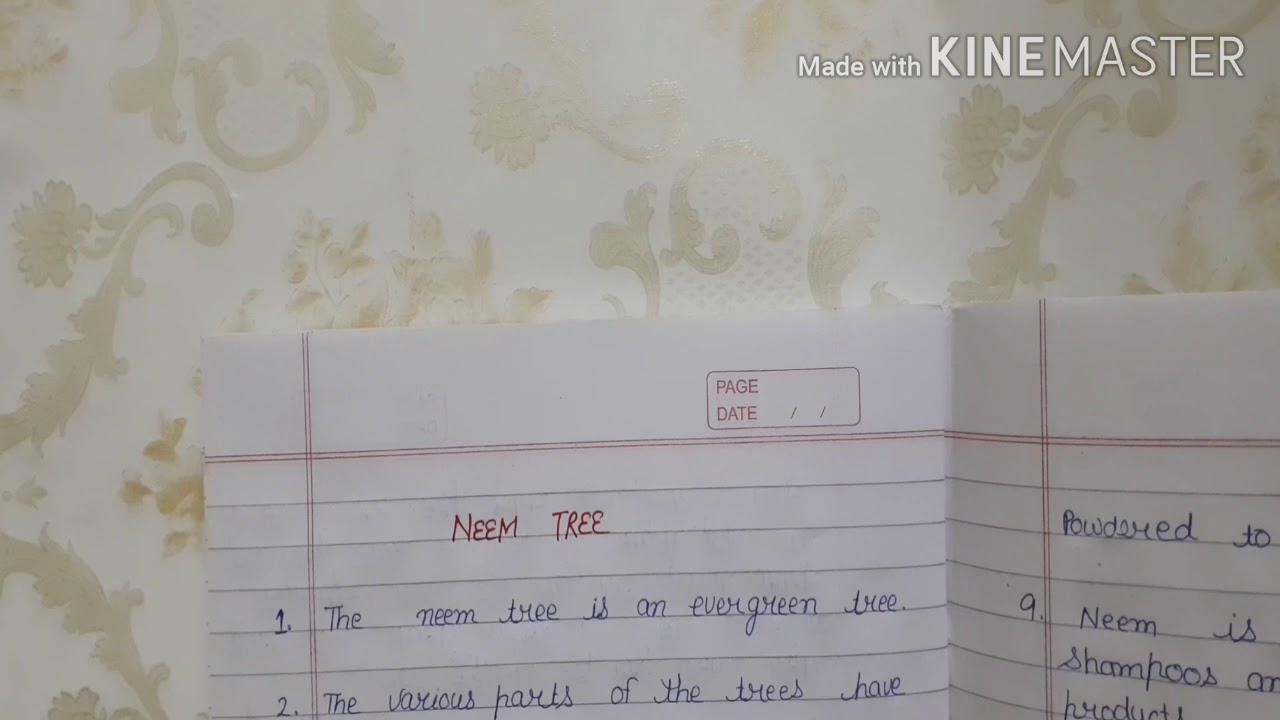 Made with KINEMASTER
PAGE
DATE / /
NEEM TREE
1. The neem tree is an evergreen tree.
2. The various parts of the trees have
Powdered to
9. Neem is
Shampoos an
products